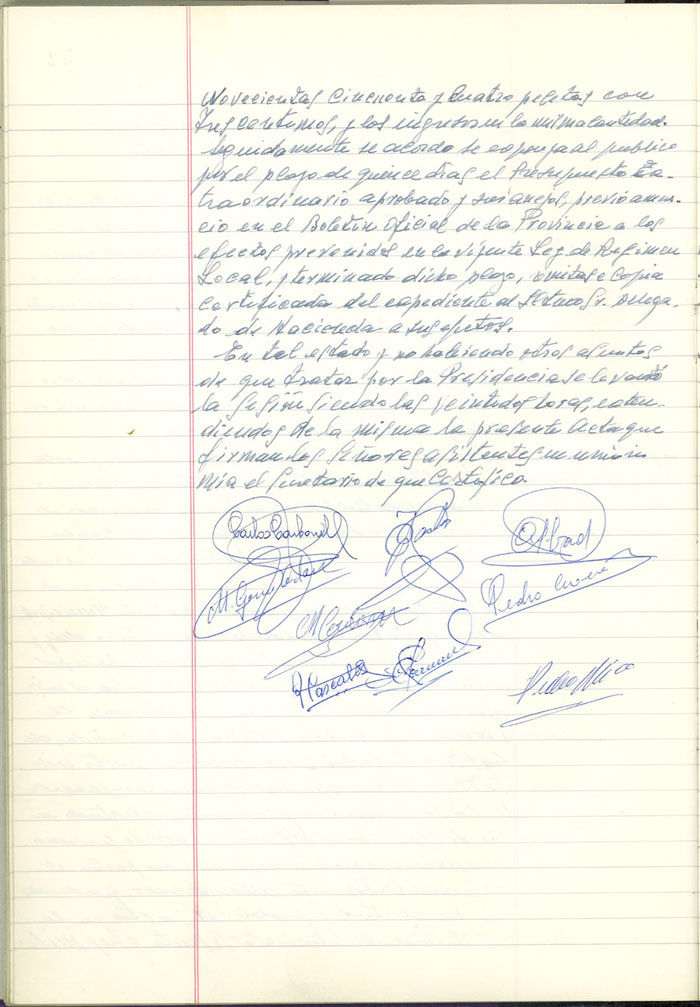 Novecientas cincuenta y cuatro pesetas con
tres centimos, y los ingresos en la misma cantidad.
Seguidamente se acordo se exponga al publico
por el plazo de quince dias el Presupuesto Ex-
traordinario aprobado y sus anejos, previo anun-
cio en el Boletin Oficial de la Provincia a los
efectos prevenidos en la vigente Ley de Regimen
Local, y terminado dicho plazo, remitase copia
certificada del expediente al Sr. Delega-
do de Hacienda a sus efectos.
En tal estado y no habiendo otros asuntos
de que tratar por la Presidencia se levantó
la sesión siendo las veintidos horas, exten-
diendose de la misma la presente Acta que
firman los Señores asistentes en union
mia el Secretario de que Certifico.
Carlos Carbonell
Abad
M.
Pedro
M
Pascual
Pedro Mico